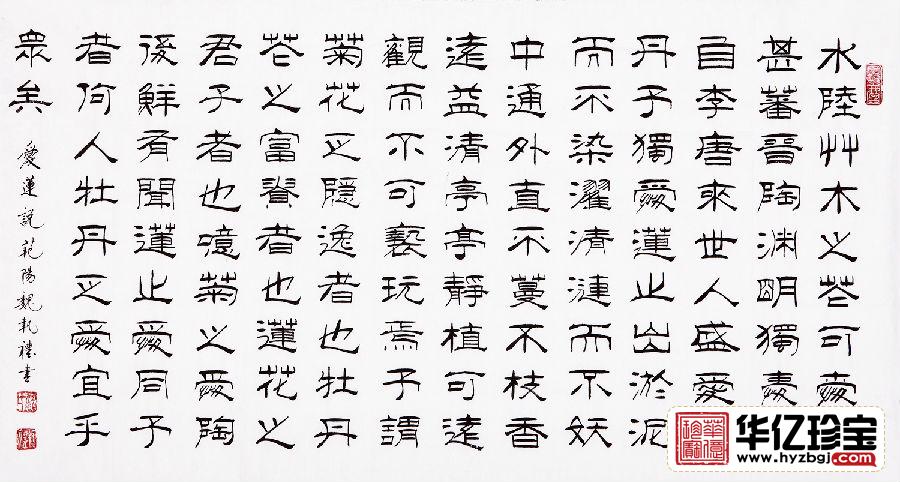 水陸艸木之花可愛
甚蕃晉陶渊明獨愛
自李唐來世人盛愛
丹予獨愛蓮之出淤泥
而不染濯清漣而不妖
中通外直不蔓不枝香
遠益清亭亭靜植可遠
觀而不可褻玩焉予謂
菊花之隱逸者也牡丹
花之富貴者也蓮花之
君子者也噫菊之愛陶
後鮮有聞蓮之愛同予
者何人牡丹之愛宜乎
眾矣
愛蓮說范陽魏執禮書
华亿珍宝
www.hyzbgj.com